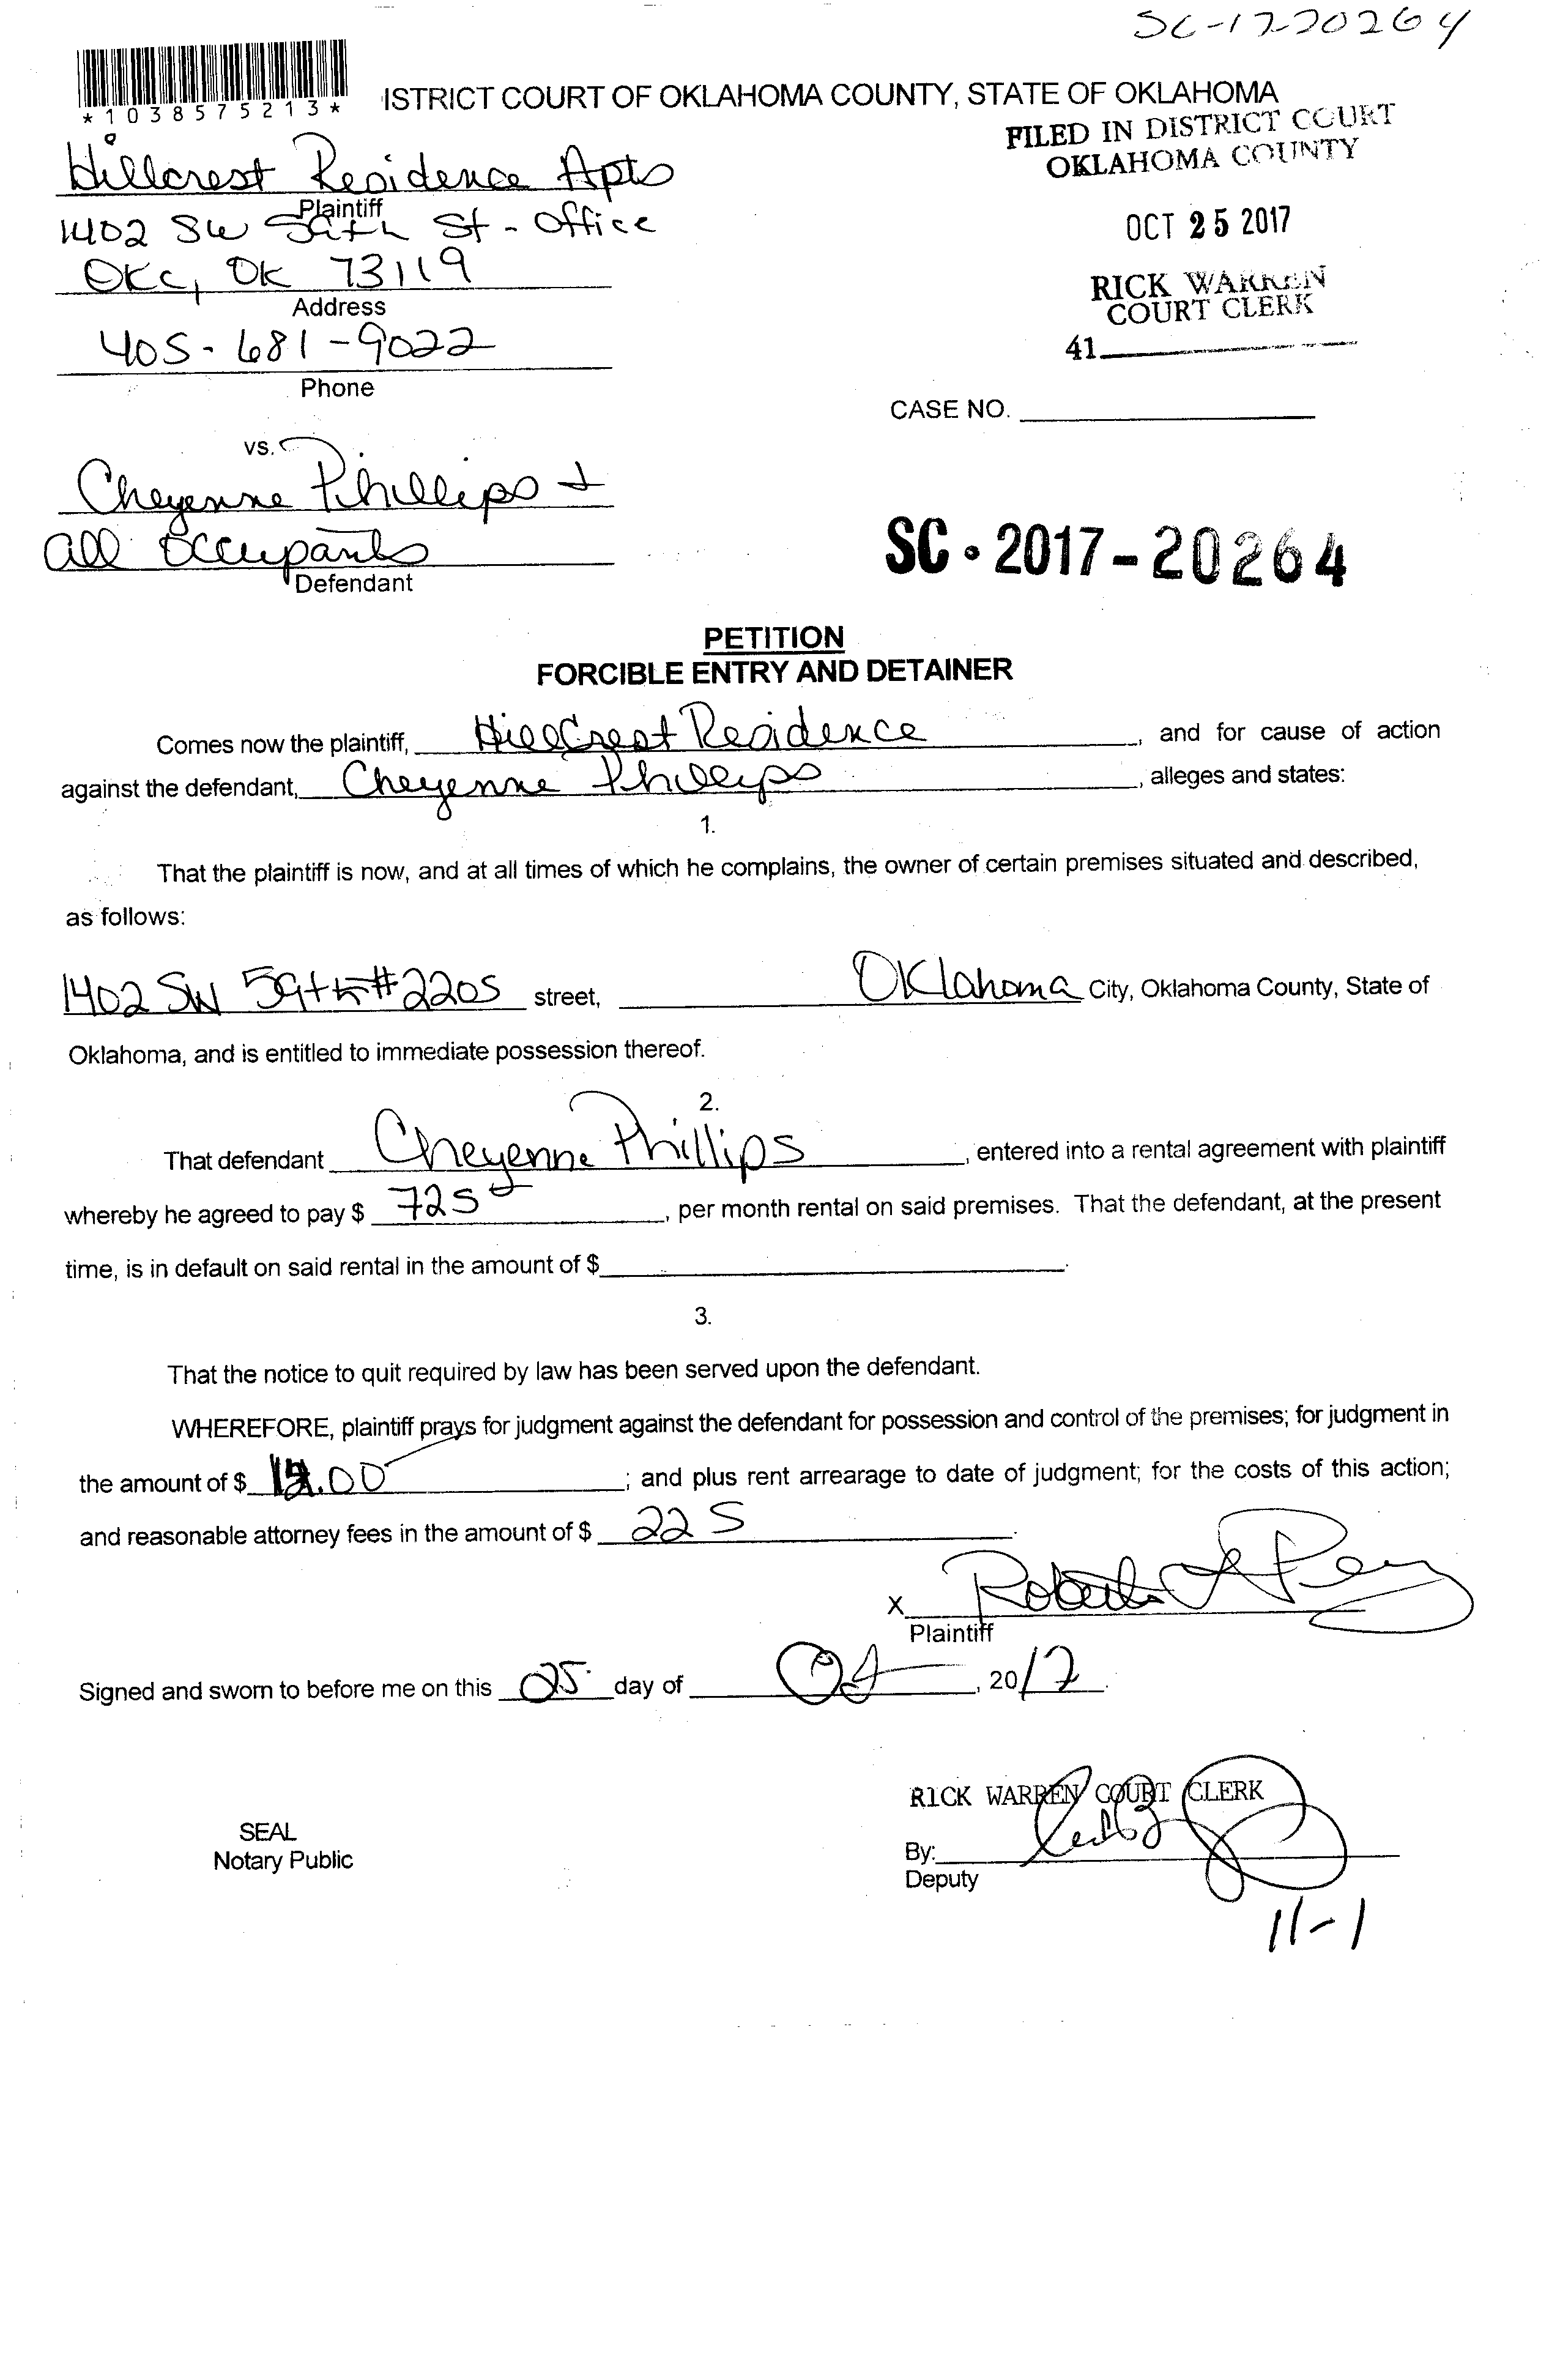 SC-17-20264
*1038575213*
ISTRICT COURT OF OKLAHOMA COUNTY, STATE OF OKLAHOMA
FILED IN DISTRICT COURT
OKLAHOMA COUNTY
Hillcrest Residence Apts
Plaintiff
1402 SW 59th St - Office
OKC, OK 73119
Address
OCT 25 2017
RICK WARREN
COURT CLERK
41
405-681-9022
Phone
CASE NO.
vs.
Cheyenne Phillips +
all Occupants
Defendant
SC • 2017-20264
PETITION
FORCIBLE ENTRY AND DETAINER
Comes now the plaintiff, HillCrest Residence, and for cause of action
against the defendant, Cheyenne Phillips, alleges and states:
1.
That the plaintiff is now, and at all times of which he complains, the owner of certain premises situated and described,
as follows:
1402 SW 59th #2205 street, Oklahoma City, Oklahoma County, State of
Oklahoma, and is entitled to immediate possession thereof.
2.
That defendant Cheyenne Phillips, entered into a rental agreement with plaintiff
whereby he agreed to pay $ 725, per month rental on said premises. That the defendant, at the present
time, is in default on said rental in the amount of $
3.
That the notice to quit required by law has been served upon the defendant.
WHEREFORE, plaintiff prays for judgment against the defendant for possession and control of the premises; for judgment in
the amount of $ ; and plus rent arrearage to date of judgment; for the costs of this action;
and reasonable attorney fees in the amount of $ 225.
X
Plaintiff
Signed and sworn to before me on this 25 day of Oct, 2017.
RICK WARREN COURT CLERK
SEAL
Notary Public
By:
Deputy
11-1